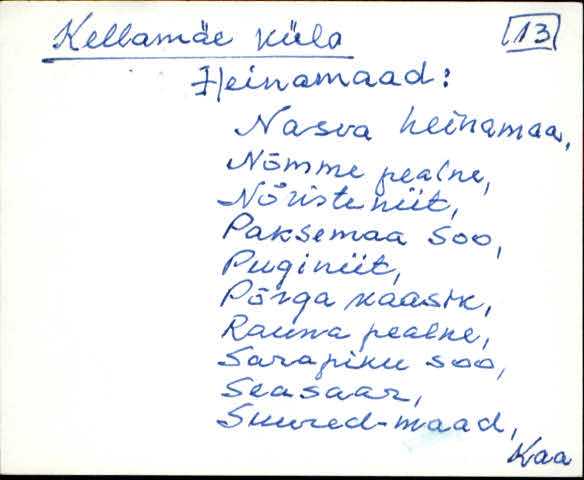 Kellamäe küla
13
Heinamaad:
Nasva heinamaa,
Nõmme pealne,
Nõriste niit,
Paksemaa soo,
Puginiit,
Põrga kaasik,
Rauna pealne,
Sarapiku soo,
Seasaar,
Suured-maad,
Kaa